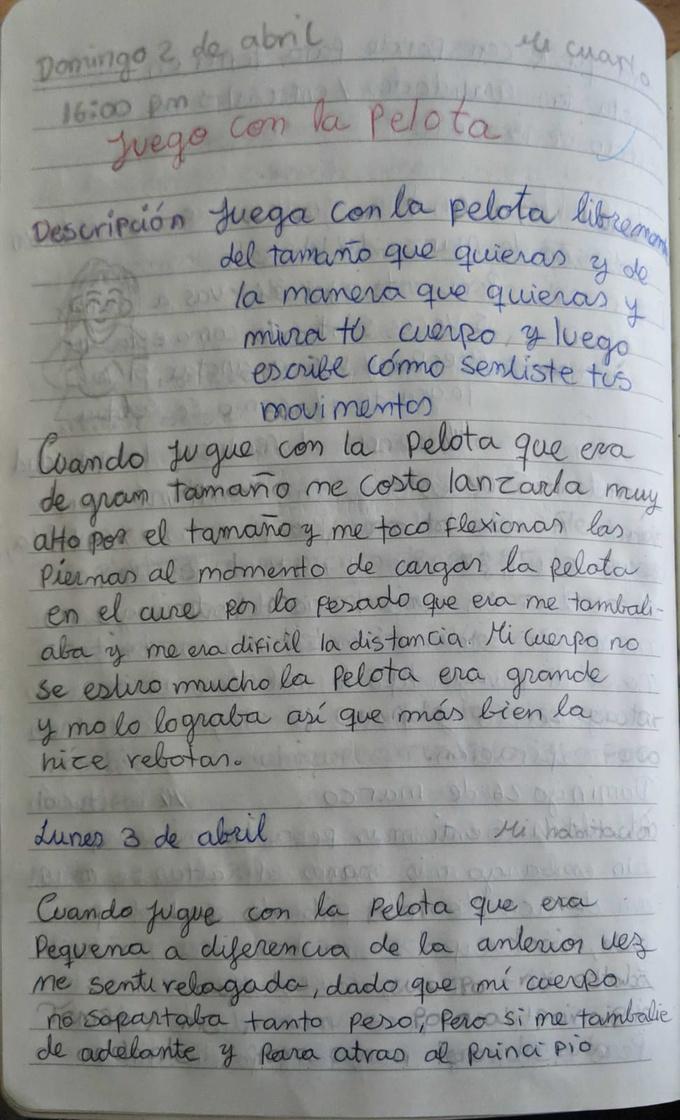 Domingo 2 de abril Mi cuarto
16:00 pm
Juego con la pelota
Descripción Juega con la pelota libremente
del tamaño que quieras y de
la manera que quieras y
mira tú cuerpo y luego
escribe cómo sentiste tus
movimentos
Cuando jugue con la pelota que era
de gran tamaño me costo lanzarla muy
alto por el tamaño y me toco flexionar las
piernas al momento de cargar la pelota
en el aire por lo pesado que era me tambali-
aba y me era dificil la distancia. Mi cuerpo no
se estiro mucho la pelota era grande
y no lo lograba así que más bien la
hice rebotar.
Lunes 3 de abril Mi habitación
Cuando jugue con la pelota que era
pequena a diferencia de la anterior vez
me senti relagada, dado que mí cuerpo
no sopartaba tanto peso, pero si me tambalie
de adelante y para atras al principio